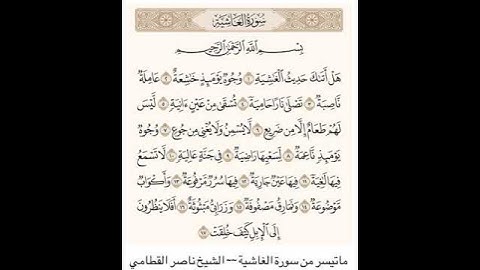 سُورَةُ الغَاشِيَةِ
بِسْمِ اللَّهِ الرَّحْمَٰنِ الرَّحِيمِ
هَلْ أَتَىٰكَ حَدِيثُ الْغَٰشِيَةِ ١ وُجُوهٌ يَوْمَئِذٍ خَٰشِعَةٌ ٢ عَامِلَةٌ
نَّاصِبَةٌ ٣ تَصْلَىٰ نَارًا حَامِيَةً ٤ تُسْقَىٰ مِنْ عَيْنٍ ءَانِيَةٍ ٥ لَّيْسَ
لَهُمْ طَعَامٌ إِلَّا مِن ضَرِيعٍ ٦ لَّا يُسْمِنُ وَلَا يُغْنِي مِن جُوعٍ ٧ وُجُوهٌ
يَوْمَئِذٍ نَّاعِمَةٌ ٨ لِّسَعْيِهَا رَاضِيَةٌ ٩ فِي جَنَّةٍ عَالِيَةٍ ١٠ لَّا تَسْمَعُ
فِيهَا لَٰغِيَةً ١١ فِيهَا عَيْنٌ جَارِيَةٌ ١٢ فِيهَا سُرُرٌ مَّرْفُوعَةٌ ١٣ وَأَكْوَابٌ
مَّوْضُوعَةٌ ١٤ وَنَمَارِقُ مَصْفُوفَةٌ ١٥ وَزَرَابِيُّ مَبْثُوثَةٌ ١٦ أَفَلَا يَنظُرُونَ
إِلَى الْإِبِلِ كَيْفَ خُلِقَتْ ١٧
ماتيسر من سورة الغاشية -- الشيخ ناصر القطامي